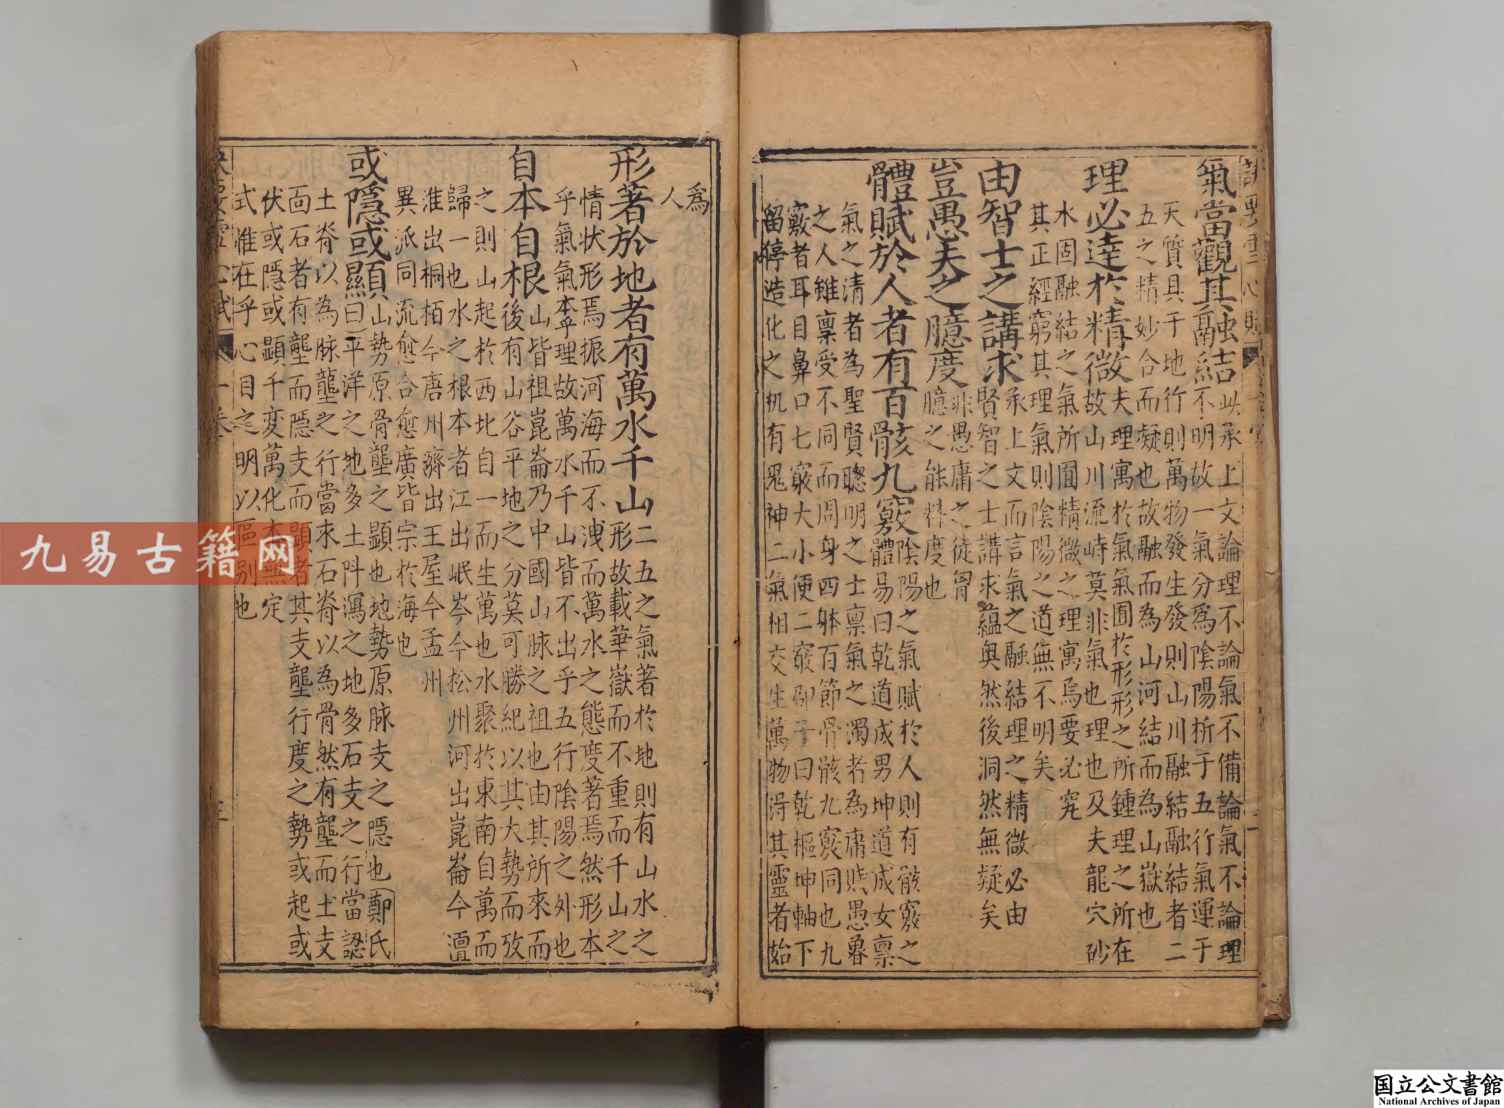 氣當觀其融結此承上文論理不論氣不備論氣不論理
不明故一氣分爲陰陽析于五行氣運于
天質具于地行則萬物發生發則山川融結融結者二
五之精妙合而凝也故融而為山河結而為山嶽也
理必達於精微夫理寓於氣氣囿於形形之所鍾理之所在
故山川流峙莫非氣也理也及夫龍穴砂
水固融結之氣所囿精微之理寓焉要必究
其正經窮其理氣則陰陽之道無不明矣
由智士之講求承上文而言氣之融結理之精微必由
賢智之士講求蘊奥然後洞然無疑矣
豈愚夫之臆度非愚庸之徒胷
臆之能料度也
體賦於人者有百骸九竅陰陽之氣賦於人則有骸竅之
體易曰乾道成男坤道成女禀
氣之清者為聖賢聰明之士禀氣之濁者為庸賎愚魯
之人雖禀受不同而周身四躰百節骨骸九竅同也九
竅者耳目鼻口七竅大小便二竅卲子曰乾樞坤軸下
留停造化之机有鬼神二氣相交生萬物淂其靈者始
爲
人
形著於地者有萬水千山二五之氣著於地則有山水之
形故載華嶽而不重而千山之
情状形焉振河海而不洩而萬水之態度著焉然形本
乎氣氣本理故萬水千山皆不出乎五行陰陽之外也
自本自根山皆祖崑崙乃中國山脉之祖也由其所來而
後有山谷平地之分莫可勝紀以其大勢而攷
之則山起於西北自一而生萬也水聚於東南自萬而
歸一也水之根本者江出岷岑今松州河出崑崙今澶
淮出桐栢今唐州濟出王屋今孟州
異派同流愈合愈廣皆宗於海也
或隱或顯山勢原骨壟之顯也地勢原脉支之隱也鄭氏
曰平洋之地多土阧瀉之地多石支之行當認
土脊以為脉壟之行當求石脊以為骨然有壟而土支
而石者有壟而隱支而顯者其支壟行度之勢或起或
伏或隱或顯千変萬化本無定
式惟在乎心目之明以區别也
九易古籍网
国立公文書館
National Archives of Japan